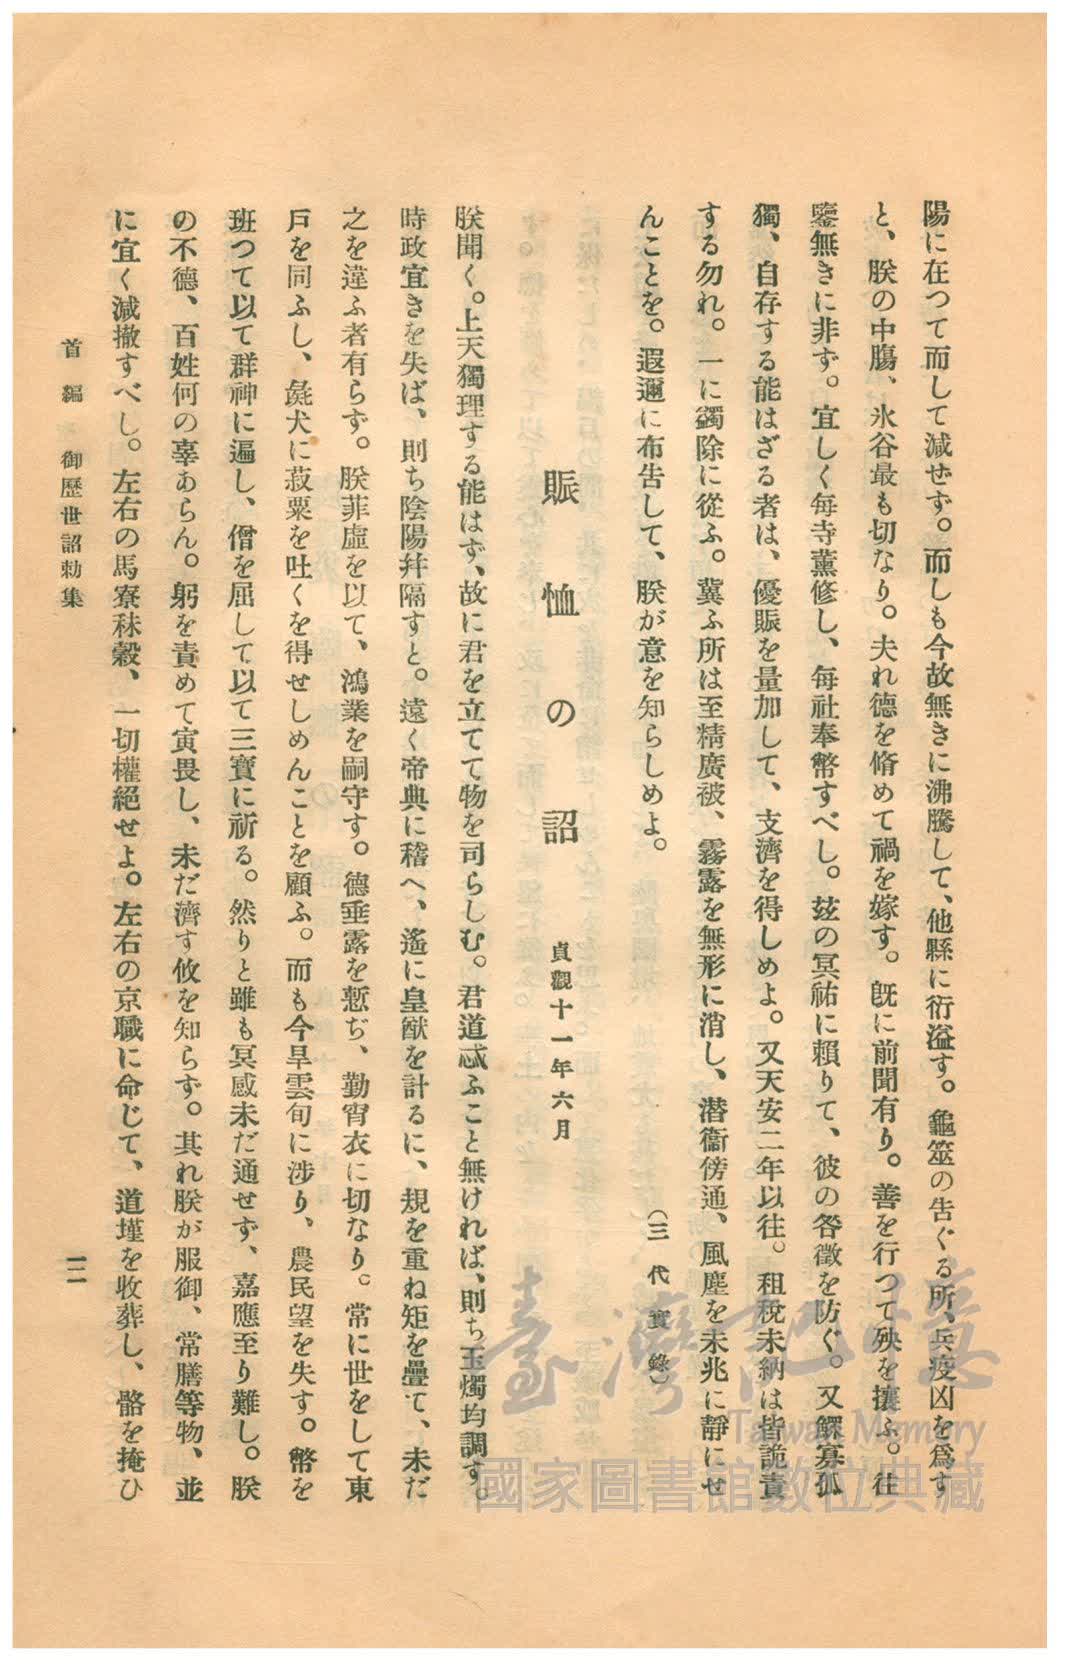 陽に在つて而して減せず。而しも今故無きに沸騰して、他縣に衍溢す。龜筮の告ぐる所、兵疫凶を爲す
と、朕の中膓、氷谷最も切なり。夫れ德を脩めて禍を嫁す。既に前聞有り。善を行つて殃を攘ふ。往
鑒無きに非ず。宜しく每寺薰修し、每社奉幣すべし。玆の冥祐に賴りて、彼の咎徵を防ぐ。又鰥寡孤
獨、自存する能はざる者は、優賑を量加して、支濟を得しめよ。又天安二年以往。租稅未納は皆詭責
する勿れ。一に蠲除に從ふ。冀ふ所は至精廣被、霧露を無形に消し、潛衞傍通、風塵を未兆に靜にせ
んことを。遐邇に布告して、朕が意を知らしめよ。
（三代實錄）
賑恤の詔　貞觀十一年六月
朕聞く。上天獨理する能はず、故に君を立てて物を司らしむ。君道忒ふこと無ければ、則ち玉燭均調す。
時政宜きを失ば、則ち陰陽幷隔すと。遠く帝典に稽へ、遙に皇猷を計るに、規を重ね矩を疊て、未だ
之を違ふ者有らず。朕菲虛を以て、鴻業を嗣守す。德垂露を慙ぢ、勤宵衣に切なり。常に世をして東
戶を同ふし、彘犬に菽粟を吐くを得せしめんことを顧ふ。而も今旱雲旬に涉り、農民望を失す。幣を
班つて以て群神に遍し、僧を屈して以て三寶に祈る。然りと雖も冥感未だ通せず、嘉應至り難し。朕
の不德、百姓何の辜あらん。躬を責めて寅畏し、未だ濟す攸を知らず。其れ朕が服御、常膳等物、並
に宜く減撤すべし。左右の馬寮秣穀、一切權絕せよ。左右の京職に命じて、道墐を收葬し、骼を掩ひ
首編　御歷世詔勅集
一一
臺灣記憶
Taiwan Memory
國家圖書館數位典藏